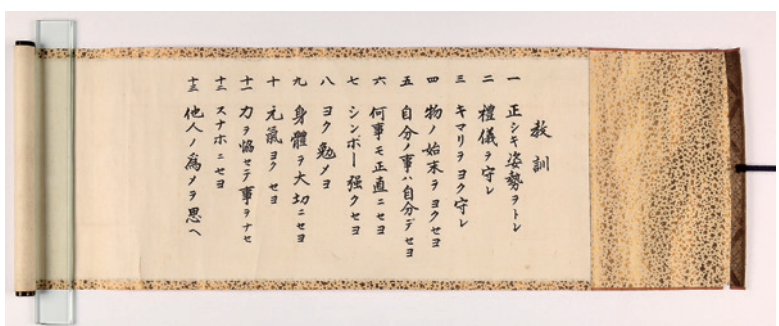 教訓
一 正シキ姿勢ヲトレ
二 禮儀ヲ守レ
三 キマリヲヨク守レ
四 物ノ始末ヲヨクセヨ
五 自分ノ事ハ自分デセヨ
六 何事モ正直ニセヨ
七 シンボー强クセヨ
八 ヨク勉メヨ
九 身體ヲ大切ニセヨ
十 元氣ヨクセヨ
十一 力ヲ恊セテ事ヲナセ
十二 スナホニセヨ
十三 他人ノ為メヲ思ヘ